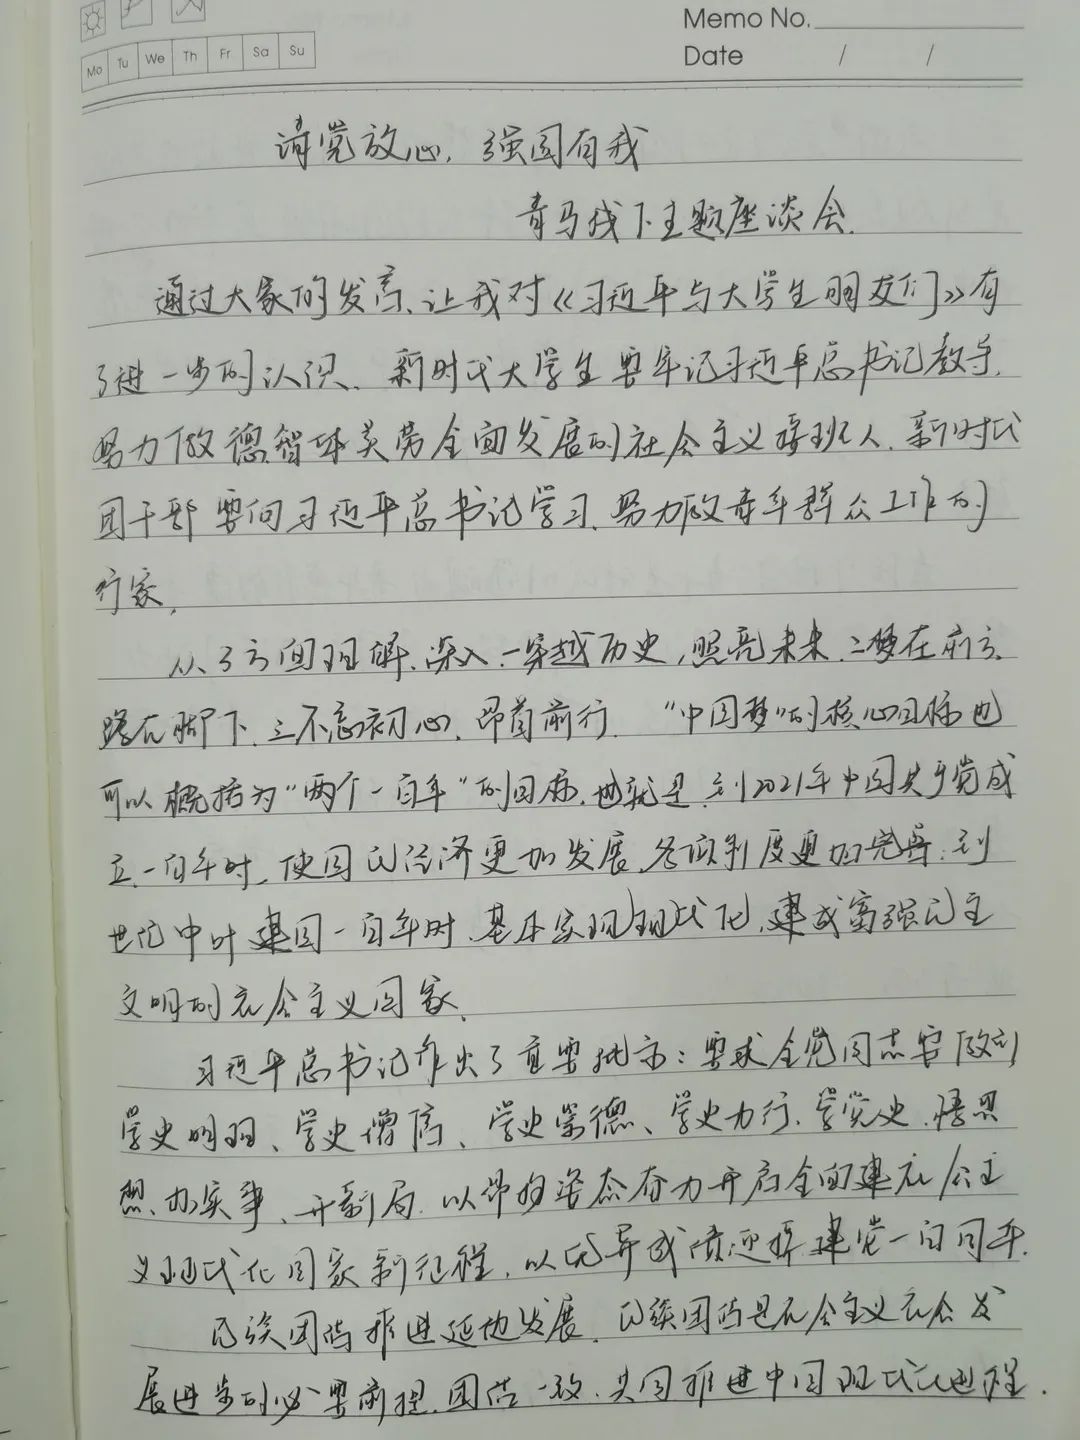 Memo No.
Mo Tu We Th Fr Sa Su
Date / /
请党放心，强国有我
青马线下主题座谈会.
通过大家的发言，让我对《习近平与大学生朋友们》有
了进一步的认识、新时代大学生要牢记习近平总书记教导，
努力做德智体美劳全面发展的社会主义接班人，新时代
团干部要向习近平总书记学习、努力做青年群众工作的
行家，
从3方面理解，深入，一穿越历史，照亮未来，二梦在前方，
路在脚下，三不忘初心，昂首前行．“中国梦”的核心目标也
可以概括为“两个一百年”的目标，也就是：到2021年中国共产党成
立一百年时，使国民经济更加发展，各项制度更加完善；到
世纪中叶建国一百年时，基本实现现代化，建成富强民主
文明的社会主义国家、
习近平总书记作出了重要批示：要求全党同志要做到
学史明理、学史增信、学史崇德、学史力行，学党史，悟思
想，办实事、开新局，以昂扬姿态奋力开启全面建社会主
义现代化国家新征程，以优异成绩迎接建党一百周年．
民族团结推进延边发展，民族团结是社会主义社会发
展进步的必要前提，团结一致，共同推进中国现代化进程．